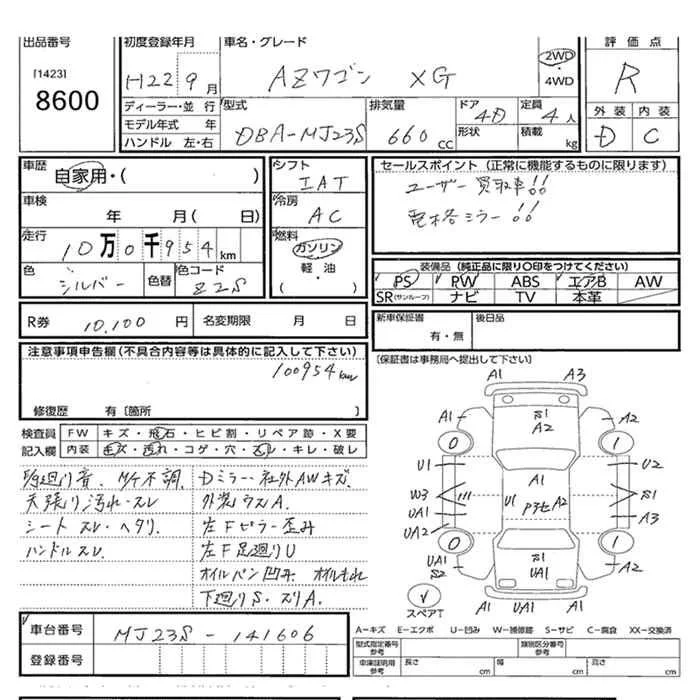 出品番号 初度登録年月 車名・グレード 評価点
[1423]
8600
H22 9月 AZワゴン XG 2WD・4WD R
ディーラー・並行 型式 排気量 ドア 4D 定員 4人 外装 内装
モデル年式 年 DBA-MJ23S 660cc 形状 積載 kg D C
ハンドル 左・右
車歴 自家用・( ) シフト IAT セールスポイント (正常に機能するものに限ります)
車検 年 月( 日) 冷房 AC ユーザー買取車!!
電格ミラー!!
走行 10万0千954km 燃料 ガソリン 軽・油 ( )
色 シルバー 色替 色コード Z2S
装備品 (純正品に限り〇印をつけてください)
PS PW ABS エアB AW
SR(サンルーフ) ナビ TV 本革
R券 10,100円 名変期限 月 日
新車保証書 有・無 後日品
(保証書は事務局へ提出して下さい)
注意事項申告欄(不具合内容等は具体的に記入して下さい)
100954km
修復歴 有〔箇所
検査員 FW キズ・飛石・ヒビ割・リペア跡・X要
記入欄 内装 キズ・汚れ・コゲ・穴・スレ・キレ・破レ
天張り汚れ・スレ
シートスレ・ヘタリ
ハンドルスレ
Dミラー・社外AWキズ
外装ウスA.
左Fピラー歪み
左F足廻りU
オイルパン凹み オイルもれ
下廻りS・ズリA.
A1 A3
A1 S1 A2 A2
0 1
U1 A1 U2
W3 U1 P3セ A2 S1
UA1 A3
UA2
0 1
UA1 S2 S1 UA1 A2
A1 UA1 A1
スペアT
車台番号 MJ23S-141606
登録番号
A−キズ E−エクボ U−凹み W−補修跡 S−サビ C−腐食 XX−交換済
型式指定番号 参考 類別区分番号 参考
車庫証明用 参考 長さ cm 幅 cm 高さ cm